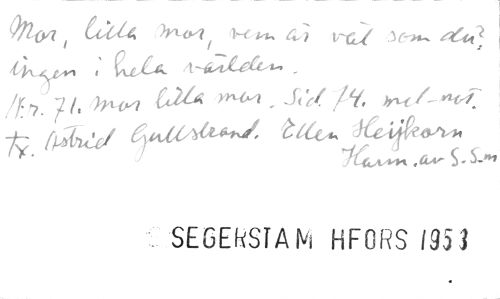 Mor, lilla mor, vem är väl som du?
ingen i hela världen.
Nr. 71. Mor lilla mor. Sid. 74. mel-not.
Tx. Astrid Gullstrand. Ellen Heijkorn
Harm. av S. S-m
SEGERSTAM HFORS 1953